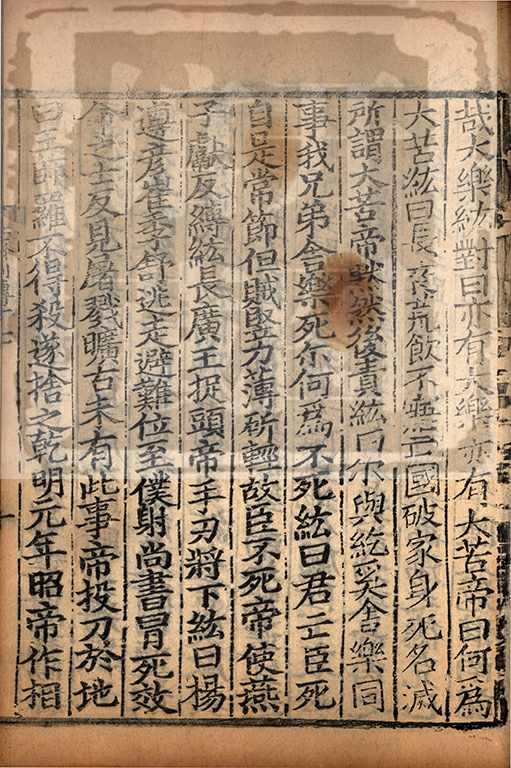 哉大樂紘對曰亦有大樂亦有大苦帝曰何爲
大苦紘曰長夜荒飲不寤亡國破家身死名滅
所謂大苦帝黙然後責紘曰尔與紇奚舍樂同
事我兄弟舍樂死尔何爲不死紘曰君亡臣死
自是常節但賊竪力薄斫輕故臣不死帝使燕
子獻反縛紘長廣王捉頭帝手刃將下紘曰楊
遵彦崔季舒逃走避難位至僕射尚書冒死效
命之士反見屠戮曠古未有此事帝投刀於地
曰王師羅不得殺遂捨之乾明元年昭帝作相